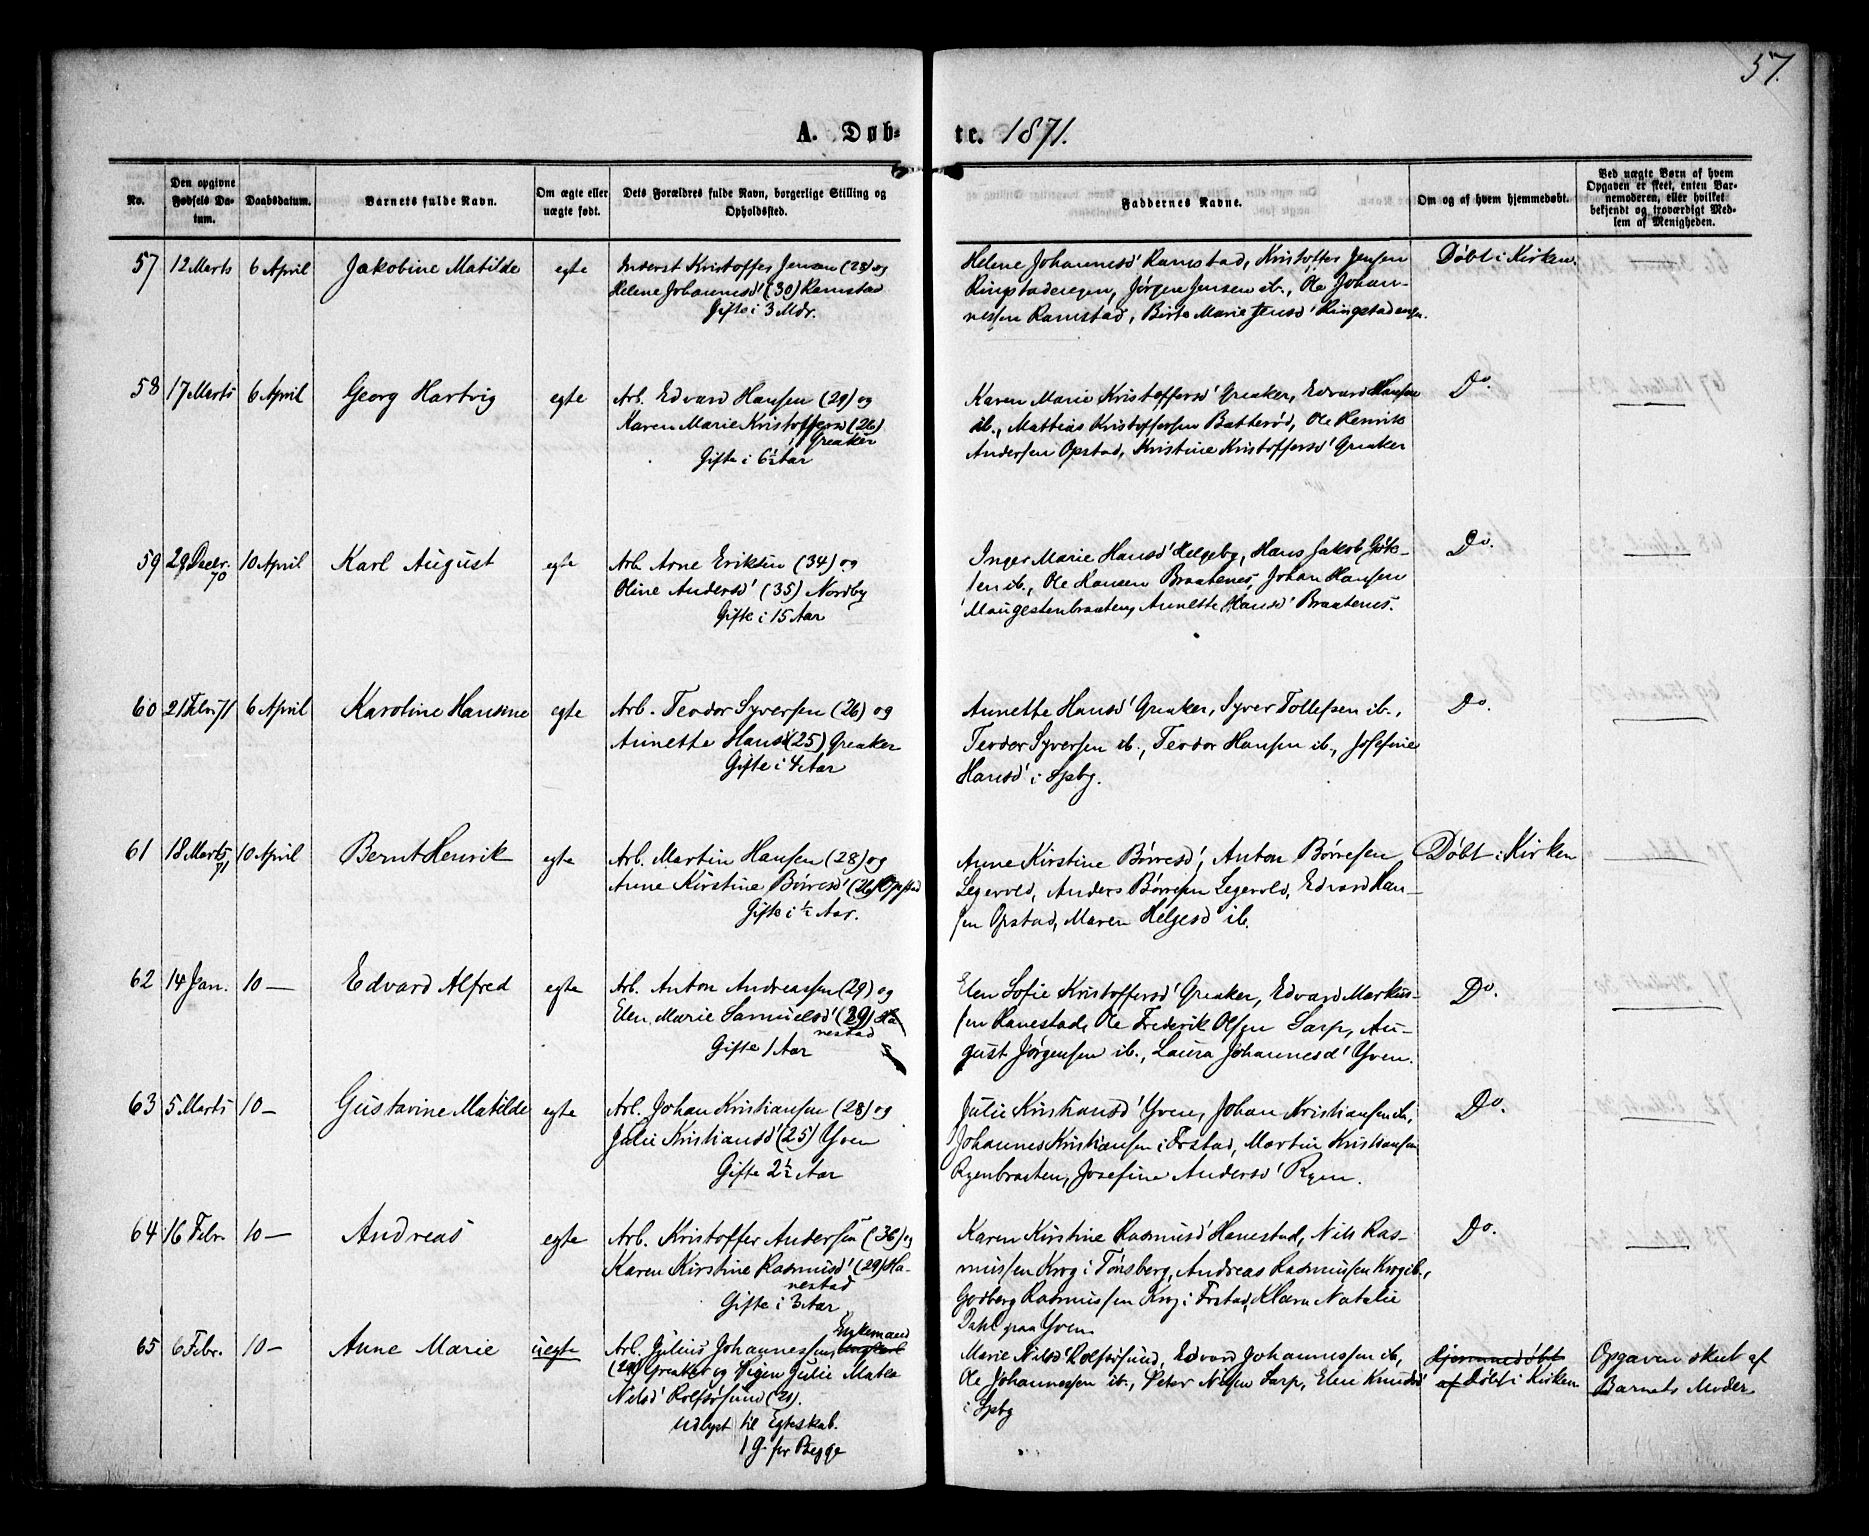 57.
A. Døb- te. 1871.
No.
Den opgivne Fødsels Datum.
Daabsdatum.
Barnets fulde Navn.
Om ægte eller uægte født.
Dets Forældres fulde Navn, borgerlige Stilling og Opholdssted.
Faddernes Navne.
Om og af hvem hjemmedøbt.
Ved uægte Børn af hvem Opgaven er skeet, enten Barnemoderen, eller hvilket bekjendt og troværdigt Medlem af Menigheden.
57 12 Marts 6 April Jakobine Matilde egte
Inderst Kristoffer Jensen (28) og
Helene Johannesd' (30) Ramstad
Gifte i 3 Mdr.
Helene Johannesd' Ramstad, Kristoffer Jensen
Ringstadengen, Jørgen Jensen ib., Ole Johan-
nessen Ramstad, Birte Marie Jensd' Ringstadengen.
Døbt i Kirken.
58 17 Marts 6 April Georg Hartvig egte
Arb. Edvard Hansen (29) og
Karen Marie Kristoffersd (26)
Greaker
Gifte i 6½ Aar
Karen Marie Kristoffersd' Greaker, Edvard Hansen
ib., Mattias Kristoffersen Batterød, Ole Henrik
Andersen Opstad, Kristine Kristoffersd' Greaker
Do.
59 29 Decbr. 70 10 April Karl August egte
Arb. Arne Eriksen (34) og
Oline Andersd' (35) Nordby
Gifte i 15 Aar
Inger Marie Hansd' Helgeby, Hans Jakob
ib., Ole Hansen Braatenes, Johan Hansen
Maugestenbraaten, Annette Hansd' Braatenes.
Do.
60 21 Febr. 71 6 April Karoline Hansine egte
Arb. Teodor Syversen (26) og
Annette Hansd (25) Greaker
Gifte i 4 Aar
Annette Hansd' Greaker, Syver Tollefsen ib.,
Teodor Syversen ib., Teodor Hansen ib., Josefine
Hansd' i Spbg.
Do.
61 18 Marts 71 10 April Bernt Henrik egte
Arb. Martin Hansen (28) og
Anne Kirstine Børresd' (26) Opstad
Gifte i ½ Aar.
Anne Kirstine Børresd', Anton Børresen
Legevold, Anders Børresen Legevold, Edvard Han-
sen Opstad, Maren Helgesd' ib.
Døbt i Kirken
62 14 Jan. 10 — Edvard Alfred egte
Arb. Anton Andreassen (29) og
Elen Marie Samuelsd' (29) Ha-
nestad
Gifte 1 Aar
Elen Sofie Kristoffersd' Greaker, Edvard Markus-
sen Hanestad, Ole Frederik Olsen Sarp, Au-
gust Jørgensen ib., Laura Johannesd' Yven.
Do.
63 5 Marts 10 — Gustavine Matilde egte
Arb. Johan Kristiansen (28) og
Julie Kristiansd' (25) Yven
Gifte 2½ Aar
Julie Kristiansd' Yven, Johan Kristiansen ib.,
Johannes Kristiansen i Frstad, Martin Kristiansen
Ryenbraaten, Josefine Andersd' Ryen.
Do.
64 16 Febr. 10 — Andreas egte
Arb. Kristoffer Andersen (36) og
Karen Kirstine Rasmusd' (29) Ha-
nestad
Gifte i 3 Aar
Karen Kirstine Rasmusd' Hanestad, Nils Ras-
mussen Krog i Tønsberg, Andreas Rasmussen Krog ib.,
Godberg Rasmussen Krog i Frstad, Klara Natalie
Dahl paa Yven
Do.
65 6 Febr. 10 — Anne Marie uegte
Enkemand
Arb. Julius Johannessen, Ungkarl
(29) Greaker og Pigen Julie Matea
Nilsd' Rolfsøsund (21).
Udlyst til Egteskab.
1 G. for Begge
Marie Nilsd' Rolfsøsund, Edvard Johannessen ib.,
Ole Johannessen ib., Peter Nilsen Sarp, Elen Knudsd'
i Spbg
Hjemmedøbt
af Døbt i Kirken
Opgaven skeet af
Barnets Moder